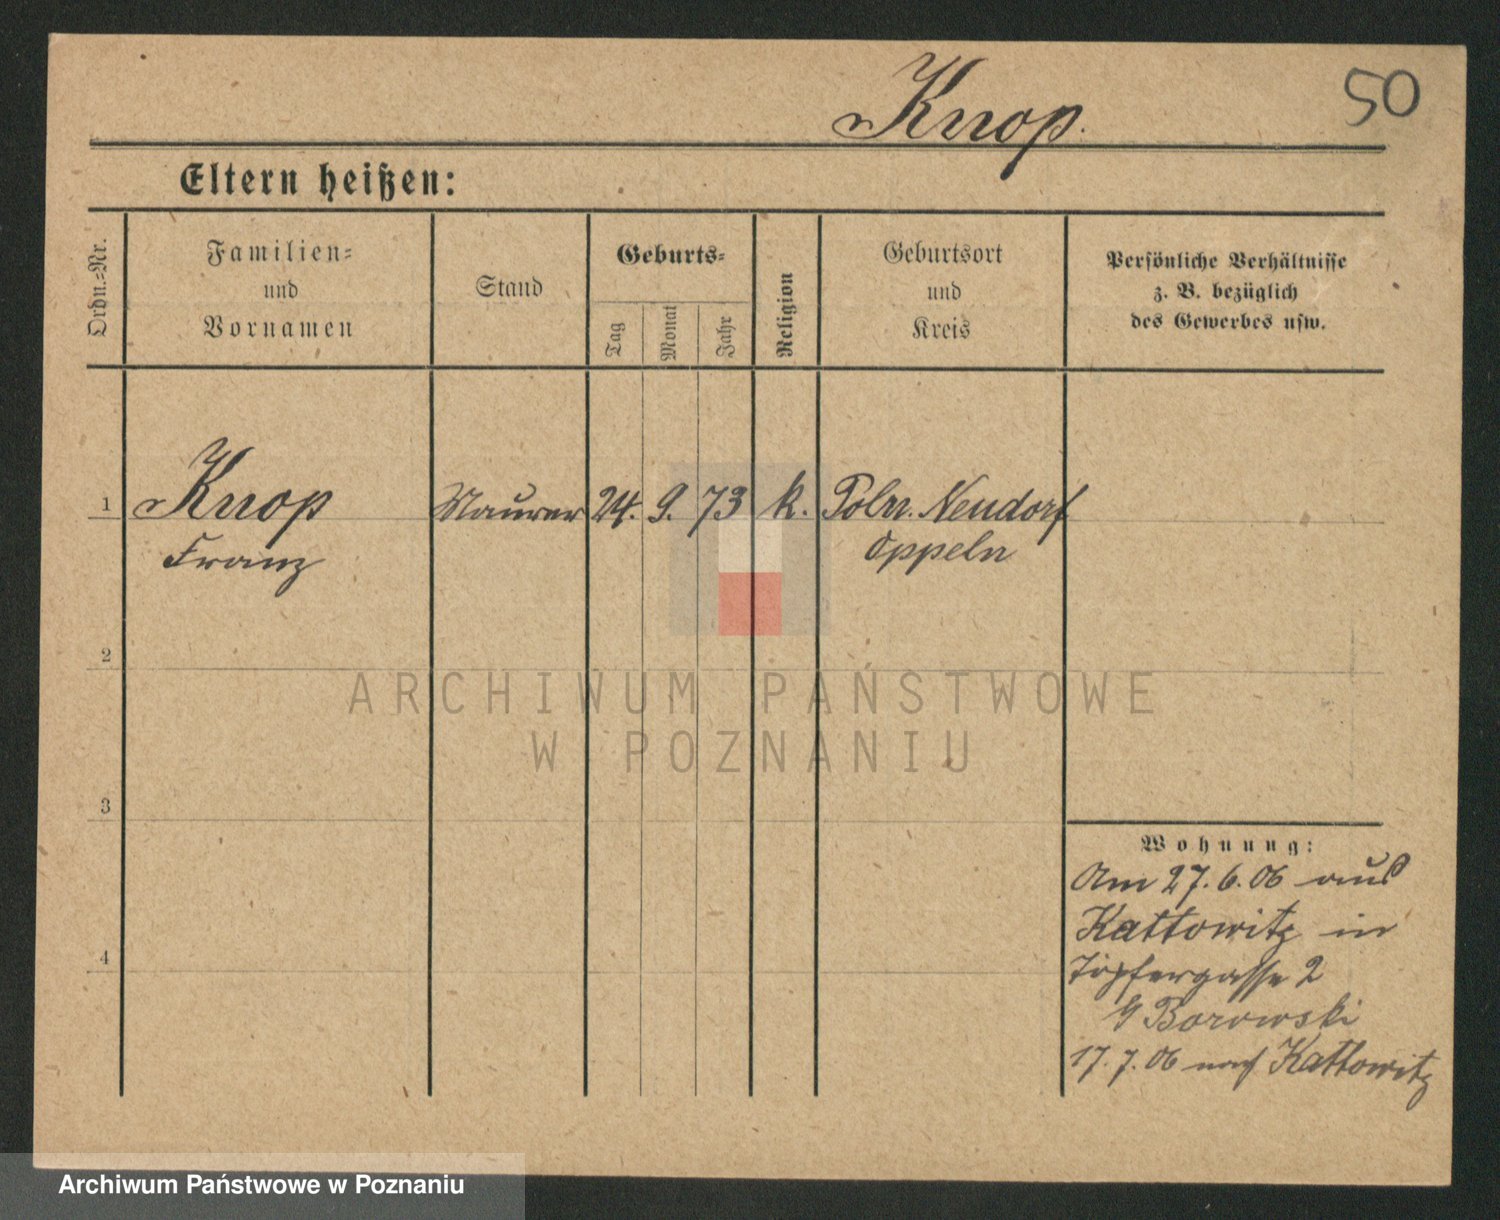 Knop.
50
Eltern heißen:
Ordn.-Nr.
Familien-
und
Vornamen
Stand
Geburts-
Tag
Monat
Jahr
Religion
Geburtsort
und
Kreis
Persönliche Verhältnisse
z. B. bezüglich
des Gewerbes usw.
1 Knop Maurer 24. 9. 73 k. Poln. Neudorf
Franz Oppeln
2
3
4
ARCHIWUM PAŃSTWOWE
W POZNANIU
Wohnung:
Am 27. 6. 06 aus
Kattowitz in
Töpfergasse 2
Borowski
17. 7. 06 nach Kattowitz
Archiwum Państwowe w Poznaniu